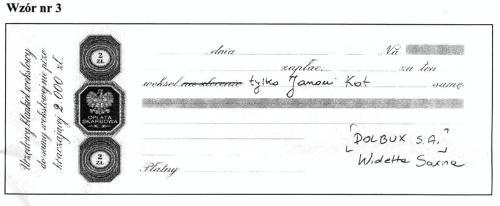 Wzór nr 3
Urzędowy blankiet wekslowy
do sumy wekslowej nie prze-
kraczającej 2.000 zł.
2
ZŁ
OPŁATA
SKARBOWA
2
ZŁ
dnia Na
zapłac za ten
weksel na zlecenie tylko Janowi Kot sumę
DOLBUX S.A.
Widetta Sarna
Płatny